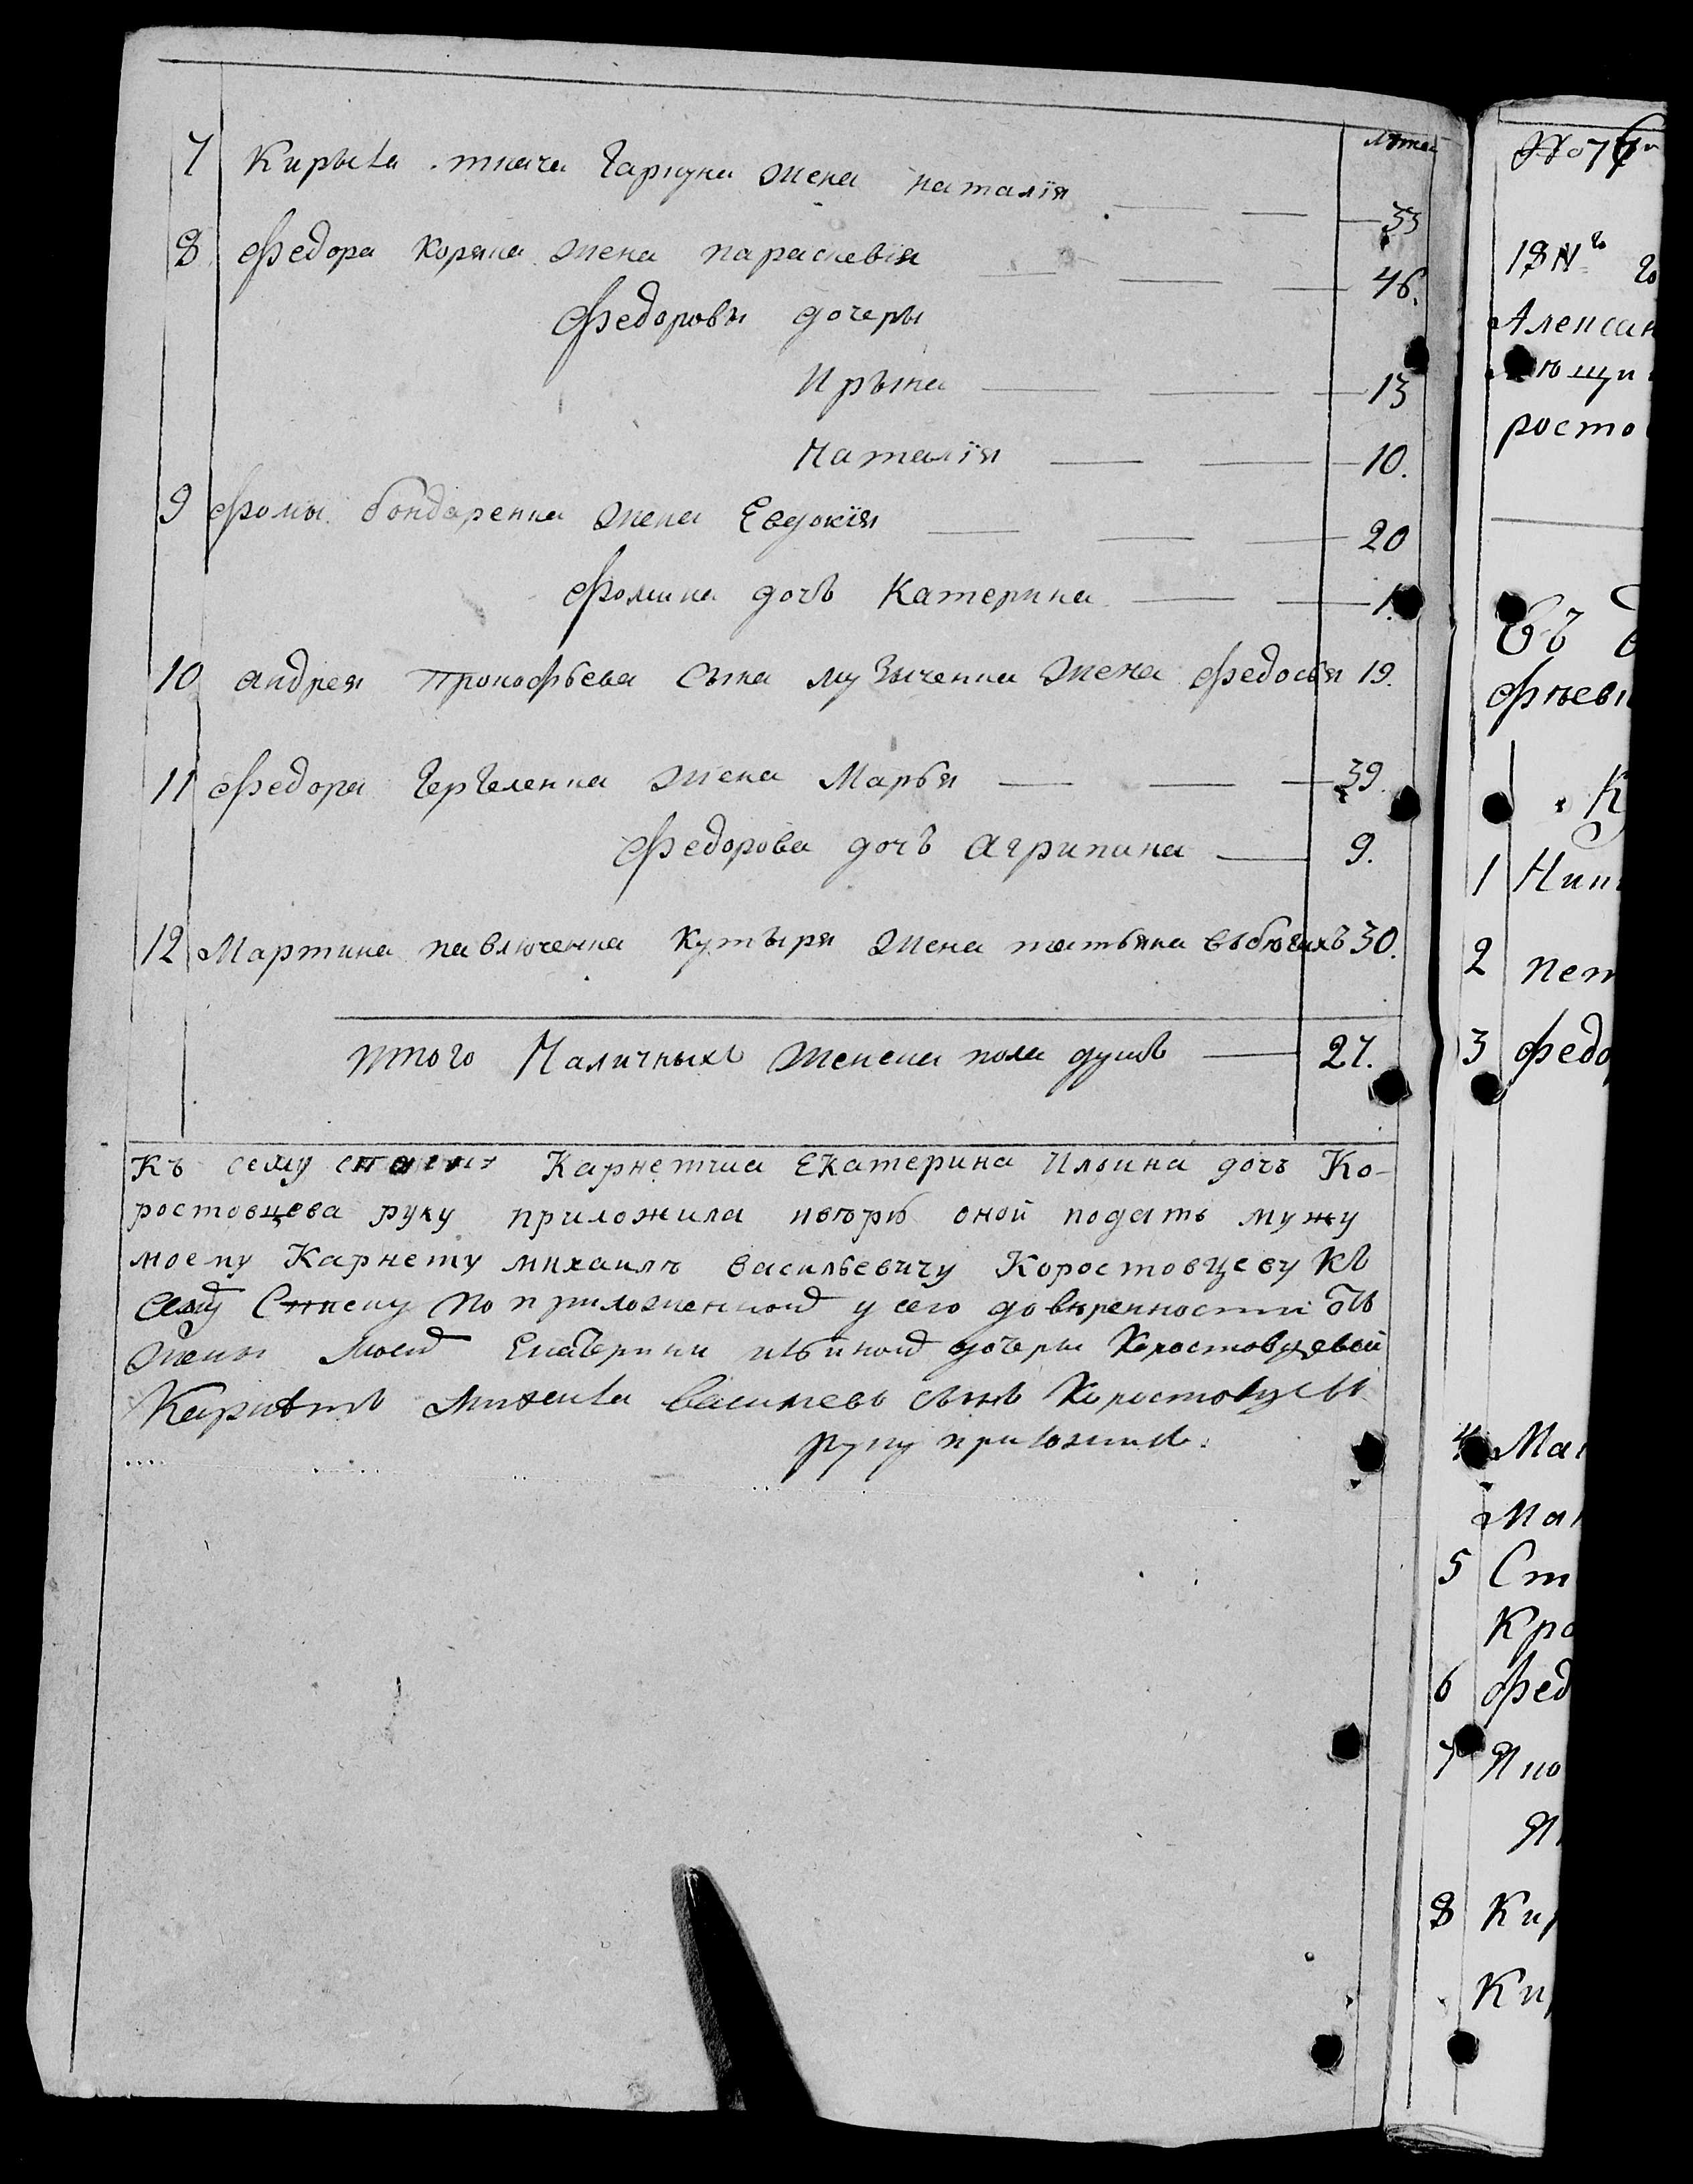 лѣта
7 Кирыла ткача Гаркуна жена наталїя 33
8 Федора Коряка жена параскевія 46.
Федоровы дочеры
Ирына 13
Наталїя 10.
9 Фомы бондаренка жена Евдокїя 20
Фомина дочь Катерина 1.
10 андрея Прокофьева сына музыченка жена федосья 19.
11 Федора Гергеленка жена Марья 39.
Федорова дочь агрипина 9.
12 Мартина павлюченка Кутыря жена татьяна 30.
итого Наличныхъ женска пола душъ 27.
Къ сему Карнетша Екатерина Ильина дочъ Ко-
ростовцева руку приложила ивѣрю оной подать мужу
моему Карнету михаилъ васильевичу Коростовцеву къ
сему Списку по приложенной у сего довѣренности отъ
жены моей Екатерины ильиной дочеры Коростовцевой
Карнетъ михаила васильевъ сынъ Коростовцевъ
руку приложилъ.
№ 76
Алексан
росто
Въ
фѣеви
К
1 Ники
2 пет
3 федо
4 Ма
Ма
5 Ст
Кра
6 Фед
7 Яко
Я
8 Ки
Ки